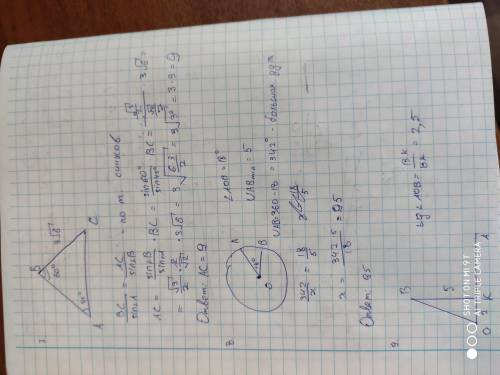 7.
B
60°
3√6
45°
A
C
BC/sin A = AC/sin B - по т. синусов
AC = sin B/sin A · BC = sin 60°/sin 45° · BC = (√3/2)/(√2/2) · 3√6 =
= √3/2 · 2/√2 · 3√6 = 3√(6·3/2) = 3√3² = 3·3 = 9
Ответ: AC = 9
8.
A
B
O
18°
∠AOB = 18°
∪AB = 5
∪AB = 360-18 = 342° - большая дуга
342/x = 18/5
x = 342·5/18 = 95
Ответ: 95
9.
B
5
O 2 K A
tg∠AOB = = 2,5
SHOT ON MI 9T
AI TRIPLE CAMERA